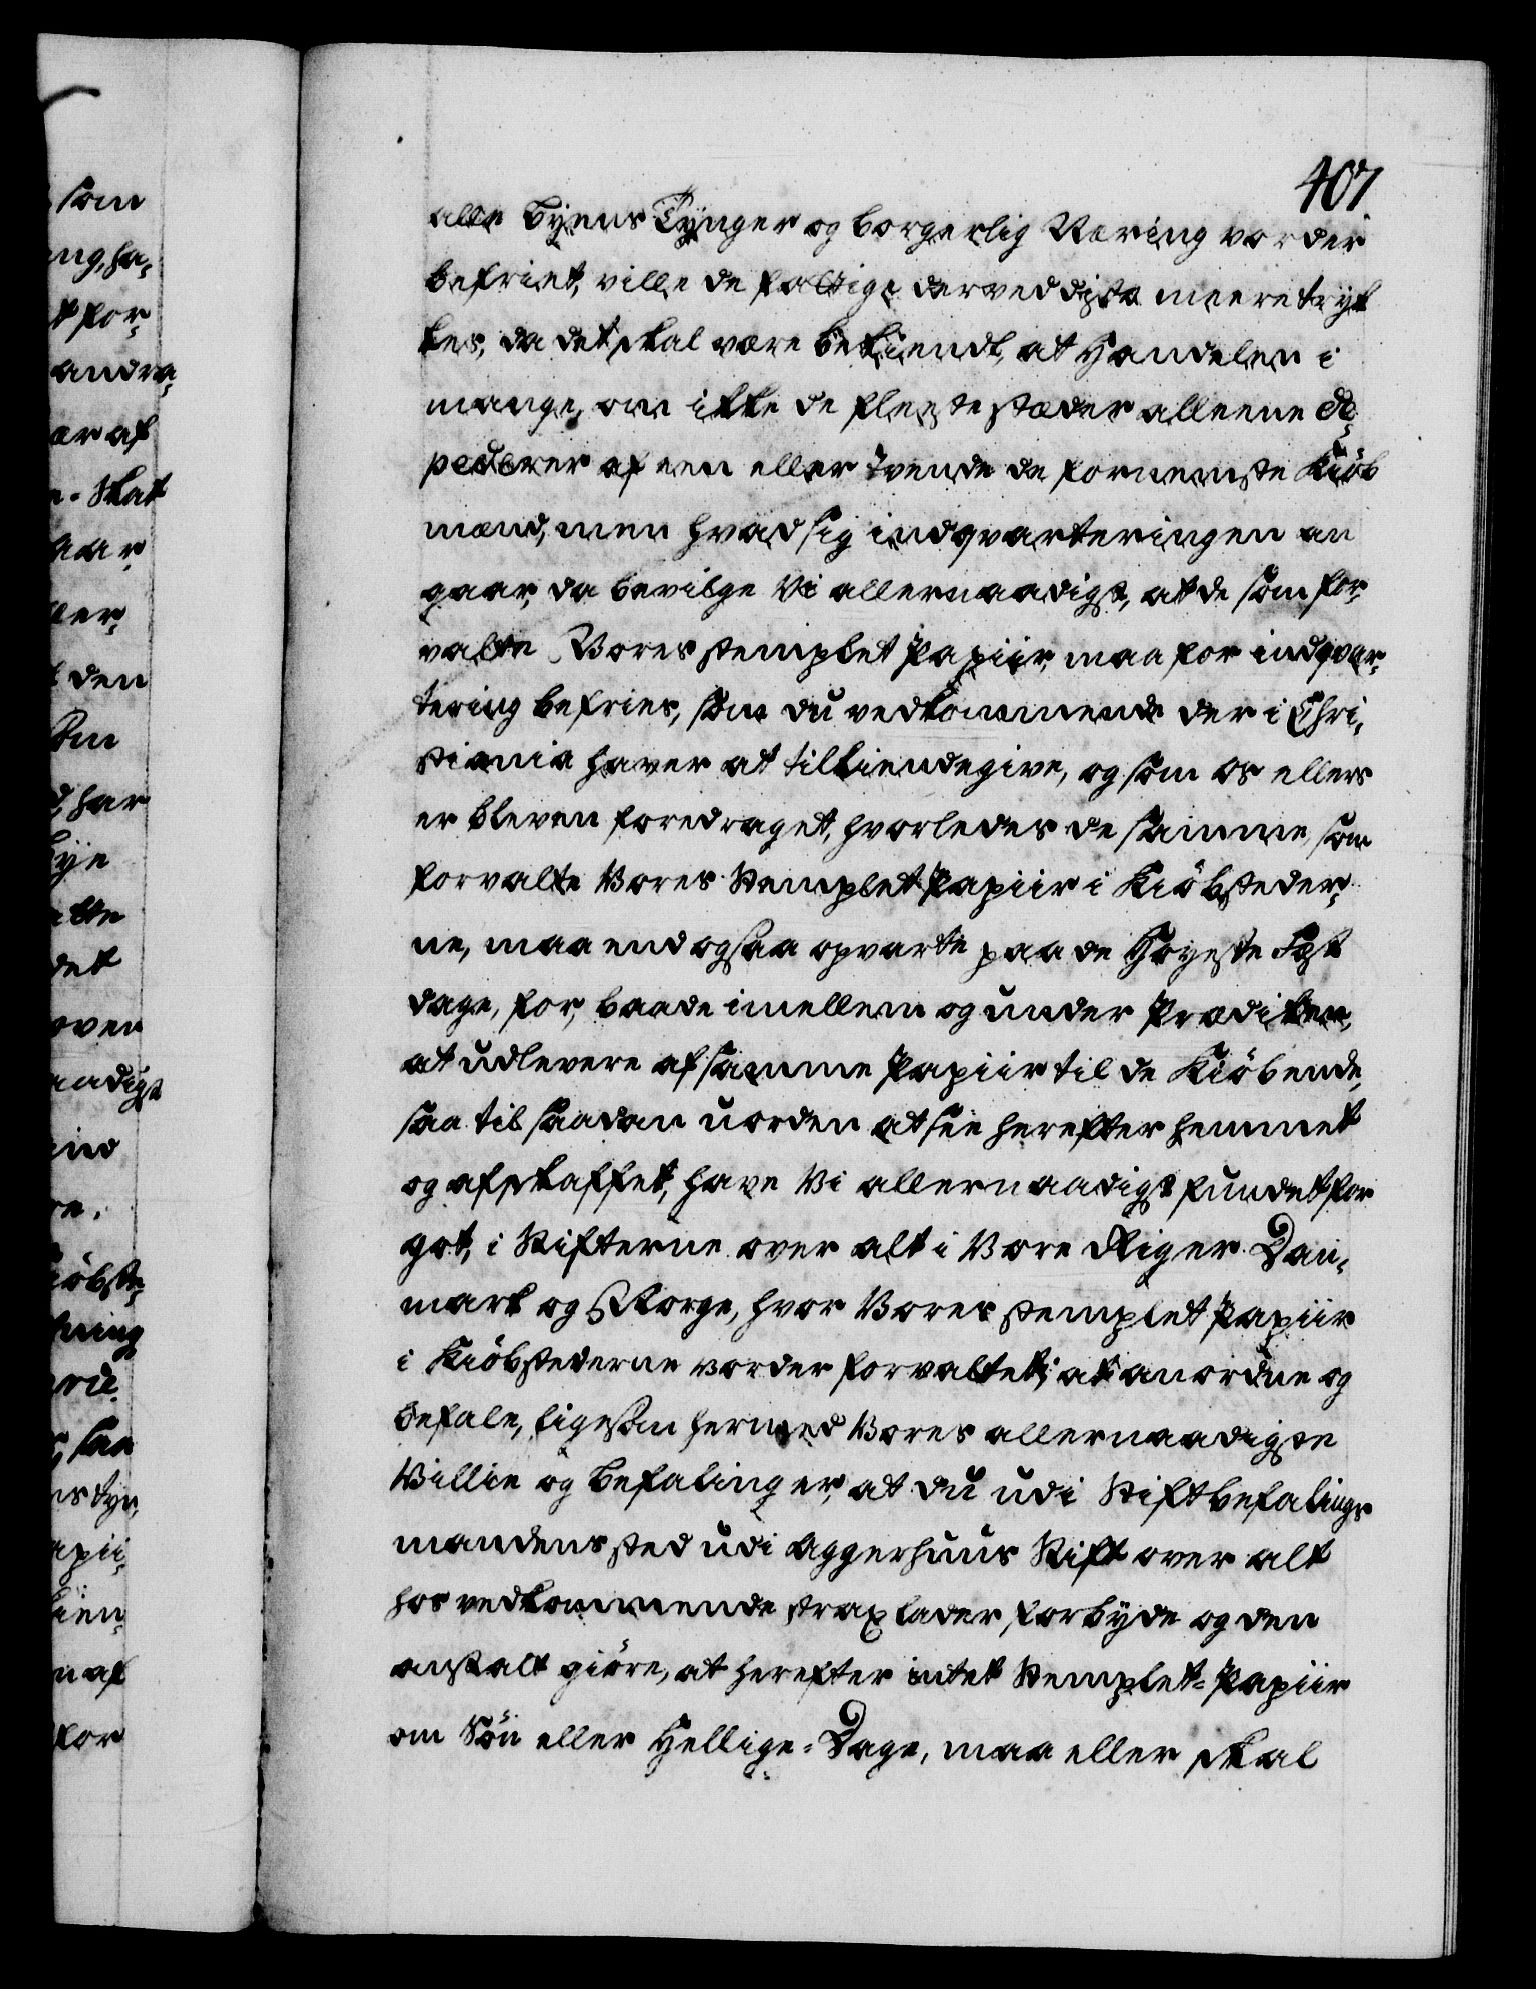 407
alle Byens Tynger og borgerlig Næring vorder
befriet, ville de fattige derved diste meere tryk
kes, da det skal være bekiendt, at Handelen i
mange, om ikke de fleeste stæder alleene de
penderer af een eller tvende de fornemste Kiöb
mænd, men hvad sig indqvarteringen an
gaar, da bevilge Vi allernaadigst, at de som for¬
valte Vores stemplet Papiir, maa for indqvar¬
tering befries, som du vedkommende der i Chri¬
stiania haver at tilkiendegive, og som os ellers
er bleven foredraget, hvorledes de samme, som
forvalte Vores Stemplet Papiir i Kiöbsteder¬
ne, maa endogsaa opvarte paa de Höyeste Fest
dage, for, baade imellem og under Prædiken,
at udlevere af samme Papiir til de Kiöbende,
saa til saadan uorden at see herefter hemmet
og afskaffet, have Vi allernaadigst fundet for
got, i Stifterne over alt i Vore Riger Dan¬
mark og Norge, hvor Vores stemplet Papiir
i Kiöbstederne vorder forvaltet; at anordne og
befale, ligesom hermed Vores allernaadigste
Villie og Befaling er, at du udi Stiftbefalings
mandens sted udi Aggerhuus Stift over alt
hos vedkommende strax lader forbyde og den
anstalt giöre, at herefter intet Stemplet-Papiir
om Sön eller Hellige-Dage, maa eller skal